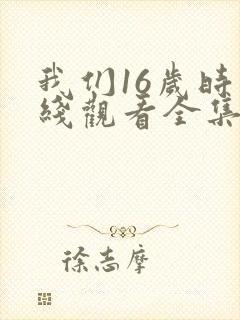 我们16歲時
綫觀看全集
徐志摩